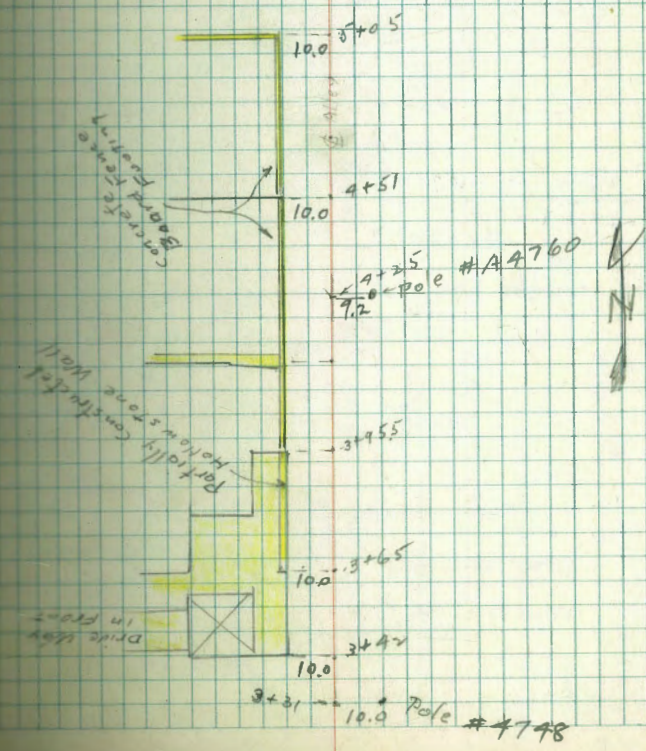 10.0 5+05
¢ Alley
Concrete
Board Fence
Footing
4+51
10.0
4+25
9.2 pole #A4760
N
Partially Constructed
Hollowstone Wall
3+95.5
10.0 3+65
Drive Way
in Front
3+42
10.0
3+31 10.0 Pole #4748